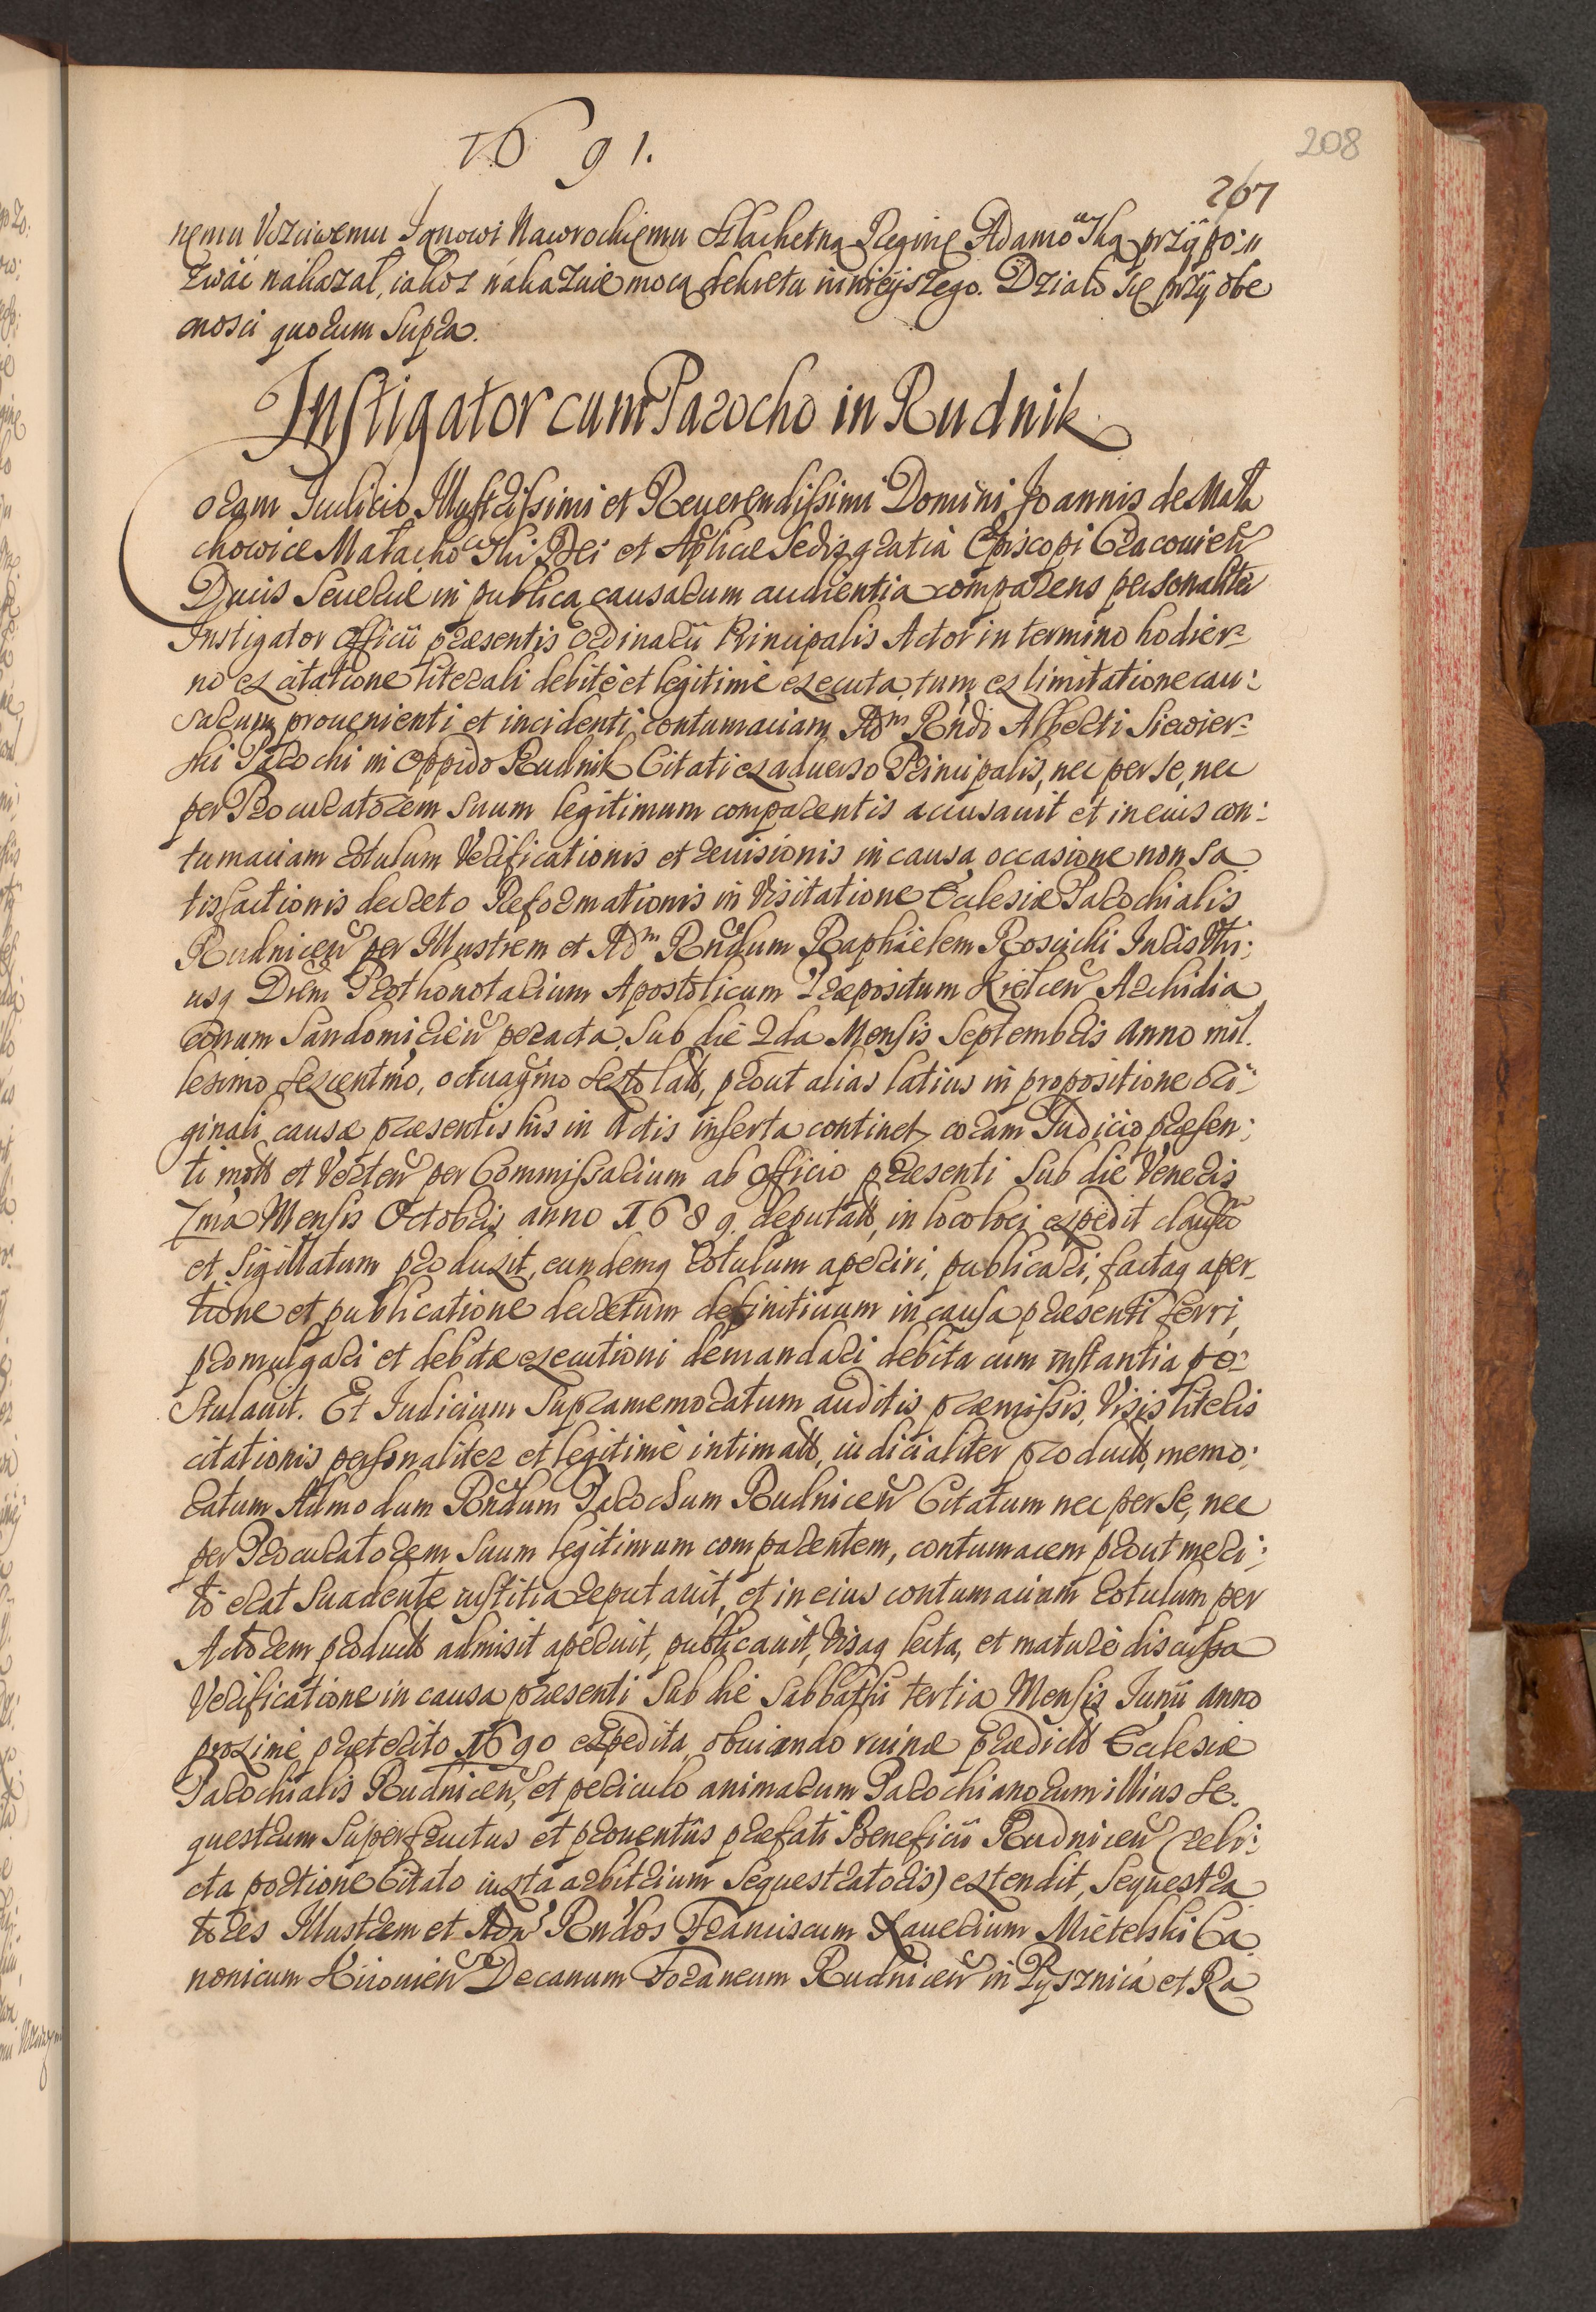 1691.
208
207
nemu Uczciwemu Janowi Nawrockiemu Szlachetną Reginę Adamowską przÿpo:
zwáć nákazał, iakoz nákazuie mocą dekretu ninieÿszego. Działo się przÿ obe
cnosci quorum supra.
Instigator cum Parocho in Rudnik
Coram Iudicio Illustrissimi et Reverendissimi Domini Joannis de Mała
chowice Małachowski Dei et Aplicae Sedis gratia Episcopi Cracovien
Ducis Severiae in publica causarum audientia comparens personaliter
Instigator officii praesentis ordinarii Principalis Actor in termino hodier-
no ex citatione literali debitè et legitimè executa, tum ex limitatione cau:
sarum provenienti et incidenti contumaciam Adm Rndi Alberti Siewier-
ski Parochi in Oppido Rudnik Citati ex adverso Principalis, nec per se, nec
per Procuratorem suum legitimum comparentis accusavit et in eius con:
tumaciam rotulum verificationis et revisionis in causa occasione non sa
tisfactionis decreto Reformationis in visitatione Ecclesiae Parochialis
Rudnicen per Illustrem et Adm Rndum Raphäelem Roscicki Iuris Utri:
usq Drem Prothonotarium Apostolicum Praepositum Kielcen Archidia
conum Sandomirien peracta, sub die 2da Mensis Septembris Anno mil.
lesimo sexcentmo, octuagmo sexto latt, prout alias latius in propositione ori:
ginali causae praesentis his in Actis inserta continet, coram Iudicio praesen:
ti mott et verten per Commissarium ab officio praesenti sub die Veneris
7ma Mensis Octobris anno 1689 deputatt, in loco loci expedit clausum
et sigillatum produxit, eundemq rotulum aperiri, publicari, factaq aper-
tione et publicatione decretum definitivum in causa praesenti ferri,
promulgari et debitae executioni demandari debita cum instantia po-
stulavit. Et Iudicium supramemoratum auditis praemissis, visis literis
citationis personaliter et legitimè intimatt, iudicialiter productt, memo:
ratum Admodum Rndum Parochum Rudnicen Citatum nec per se, nec
per Procuratorem suum legitimum comparentem, contumacem prout meri:
to erat suadente iustitia reputavit, et in eius contumaciam rotulum per
Actorem productt admisit aperuit, publicavit, visaq lecta, et maturè discussa
verificatione in causa praesenti sub die Sabbathi tertia Mensis Iunii anno
proximè praeterito 1690 expedita, obviando ruinae praedictt Ecclesiae
Parochialis Rudnicen, et periculo animarum Parochianorum illius se.
questrum super fructus et proventus praefati Beneficii Rudnicen (reli:
cta portione Citato iuxta arbitrium Sequestratoris) extendit, Sequestra
tores Illustrem et Adm Rndos Franciscum Xaverium Mietelski Ca
nonicum Kiiovien Decanum Foraneum Rudnicen in Pysznica et Ra